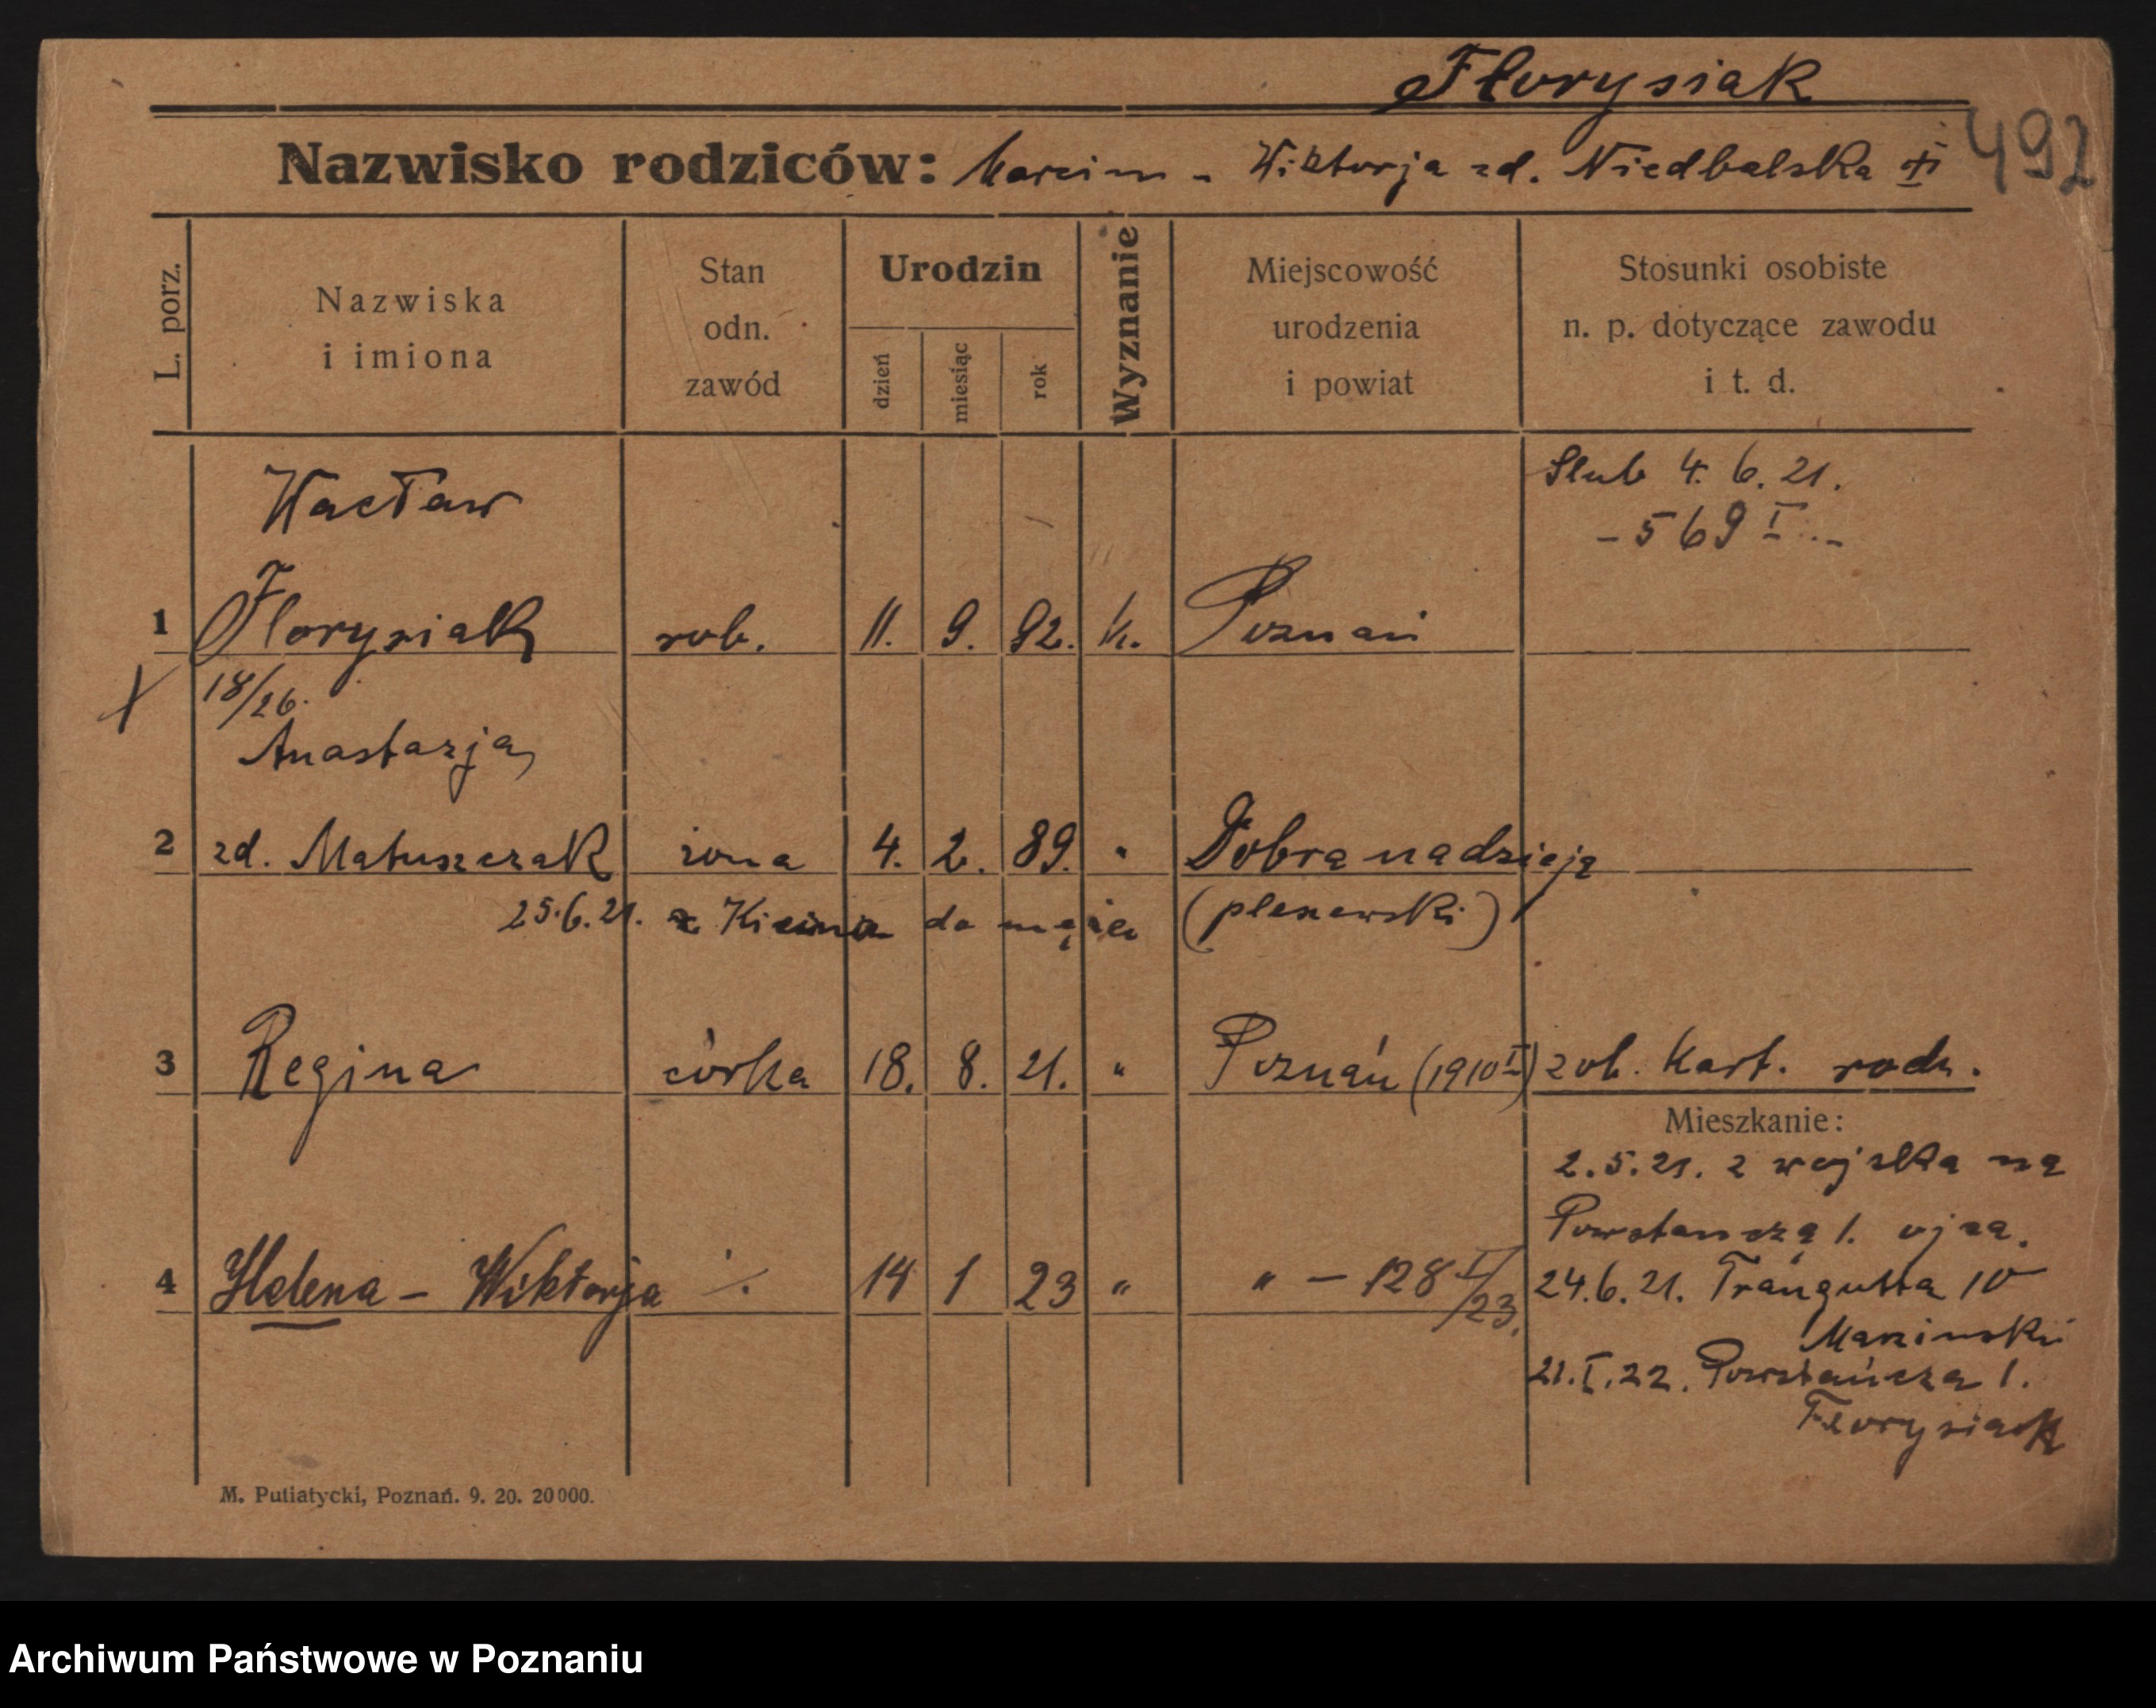 Florysiak
492
Nazwisko rodziców: Marcin - Wiktorja zd. Niedbalska
L. porz.
Nazwiska i imiona
Stan odn. zawód
Urodzin
dzień
miesiąc
rok
Wyznanie
Miejscowość urodzenia i powiat
Stosunki osobiste n. p. dotyczące zawodu i t. d.
Wacław
Slub 4. 6. 21.
- 569 I
1 Florysiak rob. 11. 9. 92. k. Poznań
18/26.
Anastazja
2 zd. Matuszczak żona 4. 2. 89. " Dobra nadzieja
25.6.21. z Kicina do męża (pleszewski)
3 Regina córka 18. 8. 21. " Poznań (1910 I) zob. Kart. rodz.
Mieszkanie:
2.5.21. z wojska na
Powstańczą 1. ojca.
4 Helena - Wiktorja ./. 14 1 23 " " - 128 I/23.
24.6.21. Traugutta 10
21.I.22. Powstańcza 1.
Florysiak
M. Putiatycki, Poznań. 9. 20. 20000.
Archiwum Państwowe w Poznaniu